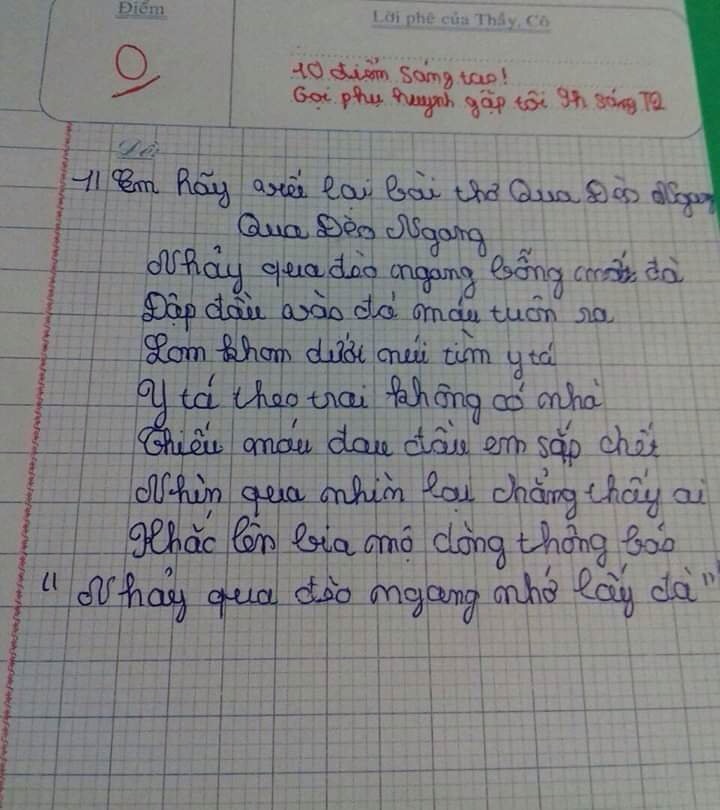 Điểm
Lời phê của Thầy, Cô
0
10 điểm sáng tạo!
Gọi phụ huynh gặp tôi 9h sáng T2
Đề:
1) Em hãy viết lại bài thơ Qua Đèo Ngang
Qua Đèo Ngang
Nhảy qua đèo ngang bỗng mất đà
Đập đầu vào đá máu tuôn ra
Lom khom dưới núi tìm y tá
Y tá theo trai không có nhà
Thiếu máu đau đầu em sắp chết
Nhìn qua nhìn lại chẳng thấy ai
Khắc lên bia mộ dòng thông báo
"Nhảy qua đèo ngang nhớ lấy đà"